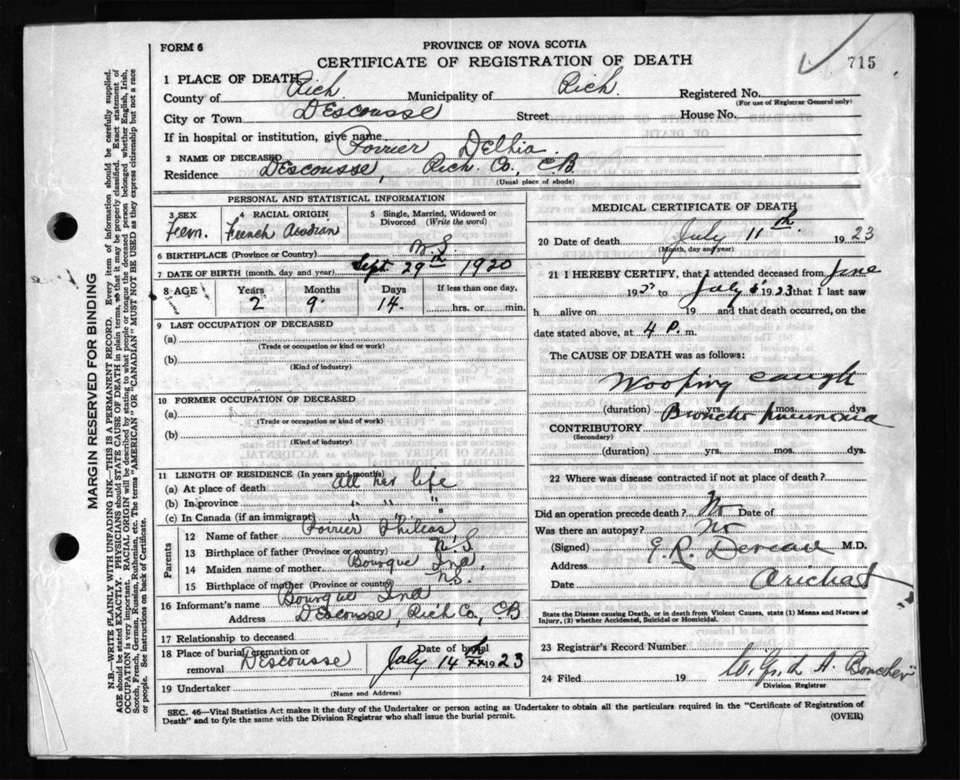 FORM 6
PROVINCE OF NOVA SCOTIA
CERTIFICATE OF REGISTRATION OF DEATH
715
1 PLACE OF DEATH
County of Rich. Municipality of Rich. Registered No.
(For use of Registrar General only)
City or Town DEscousse Street House No.
If in hospital or institution, give name
2 NAME OF DECEASED Poirier Delhia
Residence DEscousse, Rich. Co., C.B.
(Usual place of abode)
PERSONAL AND STATISTICAL INFORMATION
3 SEX Fem. 4 RACIAL ORIGIN French Acadian 5 Single, Married, Widowed or Divorced (Write the word)
6 BIRTHPLACE (Province or Country) N.S.
7 DATE OF BIRTH (month, day and year) Sept. 29th 1920
8 AGE Years 2 Months 9 Days 14 If less than one day, hrs. or min.
9 LAST OCCUPATION OF DECEASED
(a)
(Trade or occupation or kind or work)
(b)
(Kind of industry)
10 FORMER OCCUPATION OF DECEASED
(a)
(Trade or occupation or kind of work)
(b)
(Kind of industry)
11 LENGTH OF RESIDENCE (In years and months)
(a) At place of death all her life
(b) In province " " "
(c) In Canada (if an immigrant) " " "
Parents
12 Name of father Poirier Phileas
13 Birthplace of father (Province or country) N.S.
14 Maiden name of mother Bourque Ina,
15 Birthplace of mother (Province or country) N.S.
16 Informant's name Bourque Ina
Address DEscousse, Rich Co., C.B
17 Relationship to deceased
18 Place of burial, cremation or removal DEscousse Date of burial July 14th 1923
19 Undertaker
(Name and Address)
MEDICAL CERTIFICATE OF DEATH
20 Date of death July 11th 1923
(Month, day and year)
21 I HEREBY CERTIFY, that I attended deceased from June
192 to July 1923 that I last saw
h alive on 19 and that death occurred, on the
date stated above, at 4 P. m.
The CAUSE OF DEATH was as follows:
Wooping caugh
(duration) yrs. mos. dys
Broncho pneumonia
CONTRIBUTORY
(Secondary)
(duration) yrs. mos. dys.
22 Where was disease contracted if not at place of death?
Did an operation precede death? No Date of
Was there an autopsy? No
(Signed) E. R. Deveau M.D.
Address
Date Arichat
State the Disease causing Death, or in death from Violent Causes, state (1) Means and Nature of Injury, (2) whether Accidental, Suicidal or Homicidal.
23 Registrar's Record Number
24 Filed 19
Division Registrar
SEC. 46—Vital Statistics Act makes it the duty of the Undertaker or person acting as Undertaker to obtain all the particulars required in the "Certificate of Registration of
Death" and to fyle the same with the Division Registrar who shall issue the burial permit.
(OVER)
MARGIN RESERVED FOR BINDING
N.B.—WRITE PLAINLY WITH UNFADING INK—THIS IS A PERMANENT RECORD. Every item of information should be carefully supplied.
AGE should be stated EXACTLY. PHYSICIANS should STATE CAUSE OF DEATH in plain terms, so that it may be properly classified. Exact statement of
OCCUPATION is very important. RACIAL ORIGIN will be described by stating to what people or tongue the deceased person belonged whether English, Irish,
Scotch, French, German, Russian, Ruthenian, etc. The terms "AMERICAN" OR "CANADIAN" MUST NOT BE USED as they express citizenship but not a race
or people. See instructions on back of Certificate.